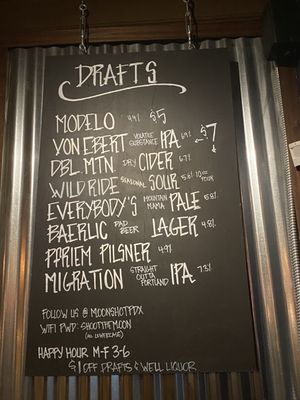 DRAFTS
MODELO 4.4% $5
VON EBERT VOLATILE SUBSTANCE IPA 6.9% ← $7
DBL. MTN. DRY CIDER 6.7%
WILD RIDE SEASONAL SOUR 5.8% 10oz POUR
EVERYBODY'S MOUNTAIN MAMA PALE 5.8%
BAERLIC DAD BEER LAGER 4.8%
PFRIEM PILSNER 4.9%
MIGRATION STRAIGHT OUTTA PORTLAND IPA 7.3%
FOLLOW US @ MOONSHOTPDX
WIFI PWD: SHOOTTHEMOON
(ALL LOWERCASE)
HAPPY HOUR M-F 3-6
$1 OFF DRAFTS & WELL LIQUOR